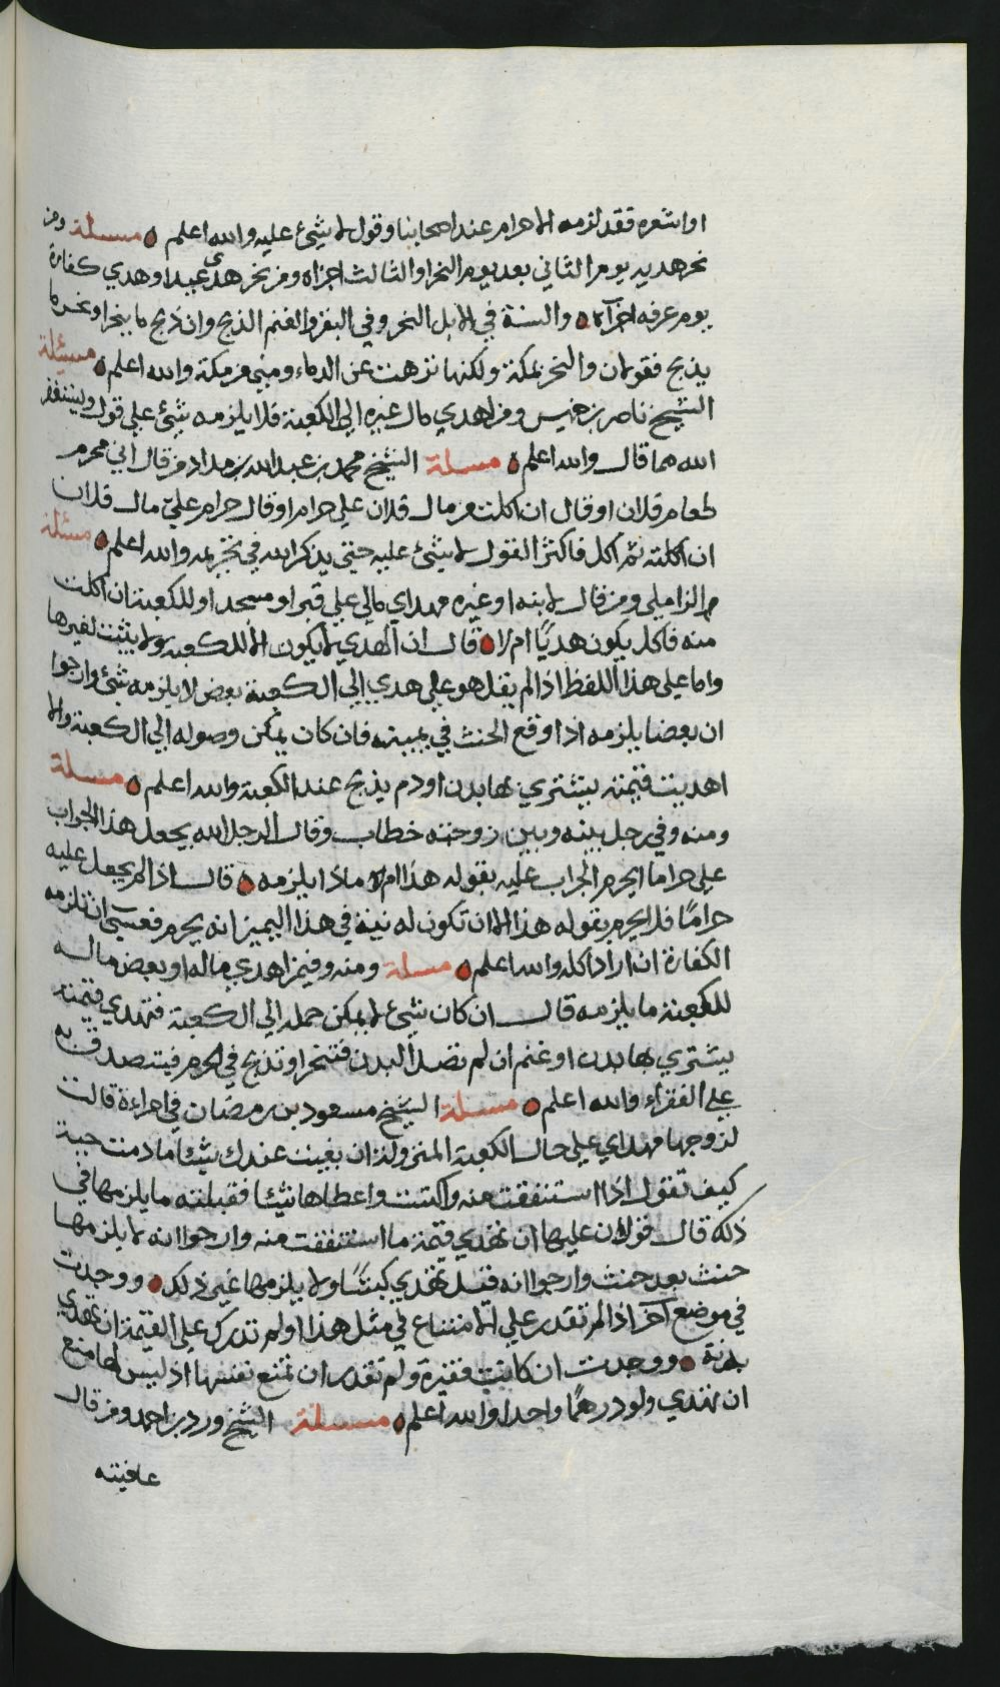 او اشعره فقد لزمه الاحرام عند اصحابنا وقول لا شيئ عليه والله اعلم مسئلة ومن
نحر هديه يوم الثاني بعد يوم النحر او الثالث اجزاه ومن نحر هدي عبد او هدي كفارة
يوم عرفه اجزآه والسنة في الابل النحر وفي البقر والغنم الذبح وان ذبح ما ينحر او نحر ما
يذبح فقولان والنحر بمكة ولكنها نزهت عن الدماء ومنى من مكة والله اعلم مسئلة
الشيخ ناصر بن خميس ومن اهدي مال غيره الى الكعبة فلا يلزمه شيئ على قول وليستغفر
الله مما قال والله اعلم مسلة الشيخ محمد بن عبدالله بن مداد من قال اني محرم
طعام فلان او قال ان اكلت من مال فلان علي حرام او قال حرام علي مال فلان
ان اكلته ثم اكل فاكثر القول لا شيئ عليه حتى يذكر الله في تحريمه والله اعلم مسئلة
م الزاملي ومن قال لابنه او غيره مهداي مالي على قبر او مسجد او للكعبة ان اكلت
منه فاكل يكون هديًا ام لا قال ان الهدي لا يكون الا للكعبه ولا يثبت لغيرها
واما على هذا اللفظ اذا لم يقل هو علي هدي الى الكعبة بعض لا يلزمه شئ وارجوا
ان بعضا يلزمه اذا وقع الحنث في يمينه فان كان يمكن وصوله الى الكعبة والا
اهديت قيمته يشتري بها بدن او دم يذبح عند الكعبة والله اعلم مسلة
ومنه وفي رجل بينه وبين زوجته خطاب وقال الرجل الله يجعل هذا الجراب
علي حراما ايحرم الجراب عليه بقوله هذا ام لا ماذا يلزمه قال اذا لم يجعل عليه
حرامًا فلا يحرم بقوله هذا الا ان تكون له نية في هذا اليمين انه يحرم فعسى ان تلزمه
الكفارة ان اراد اكله والله اعلم مسلة ومنه وفيمن اهدي ماله او بعض ماله
للكعبة ما يلزمه قال ان كان شيئ لا يمكن حمله الى الكعبة فتهدي قيمته
يشتري بها بدن او غنم ان لم تصل البدن فتنحر او تذبح في الحرم فيتصدق به
على الفقراء والله اعلم مسلة الشيخ مسعود بن رمضان في امراءة قالت
لزوجها مهداي على حال الكعبة المنزولة ان بغيت عندك شيئا ما دمت حية
كيف تقول اذا استنفقت منه واكتست واعطاها شيئا فقبلته ما يلزمها في
ذلك قال قول ان عليها ان تهدي قيمة ما استنفقت منه وارجوا انه لا يلزمها
حنث بعد حنث وارجوا انه قيل تهدي كبشًا ولا يلزمها غير ذلك ووجدت
في موضع آخر اذا لم تقدر على الامتناع في مثل هذا ولم تدرك على القيمة ان تهدي
بدنة ووجدت ان كانت فقيرة ولم تقدر ان تمنع نفسها اذ ليس لها منع
ان تهدي ولو درهمًا واحدا والله اعلم مسلة الشيخ ورد بن احمد ومن قال
عافيته